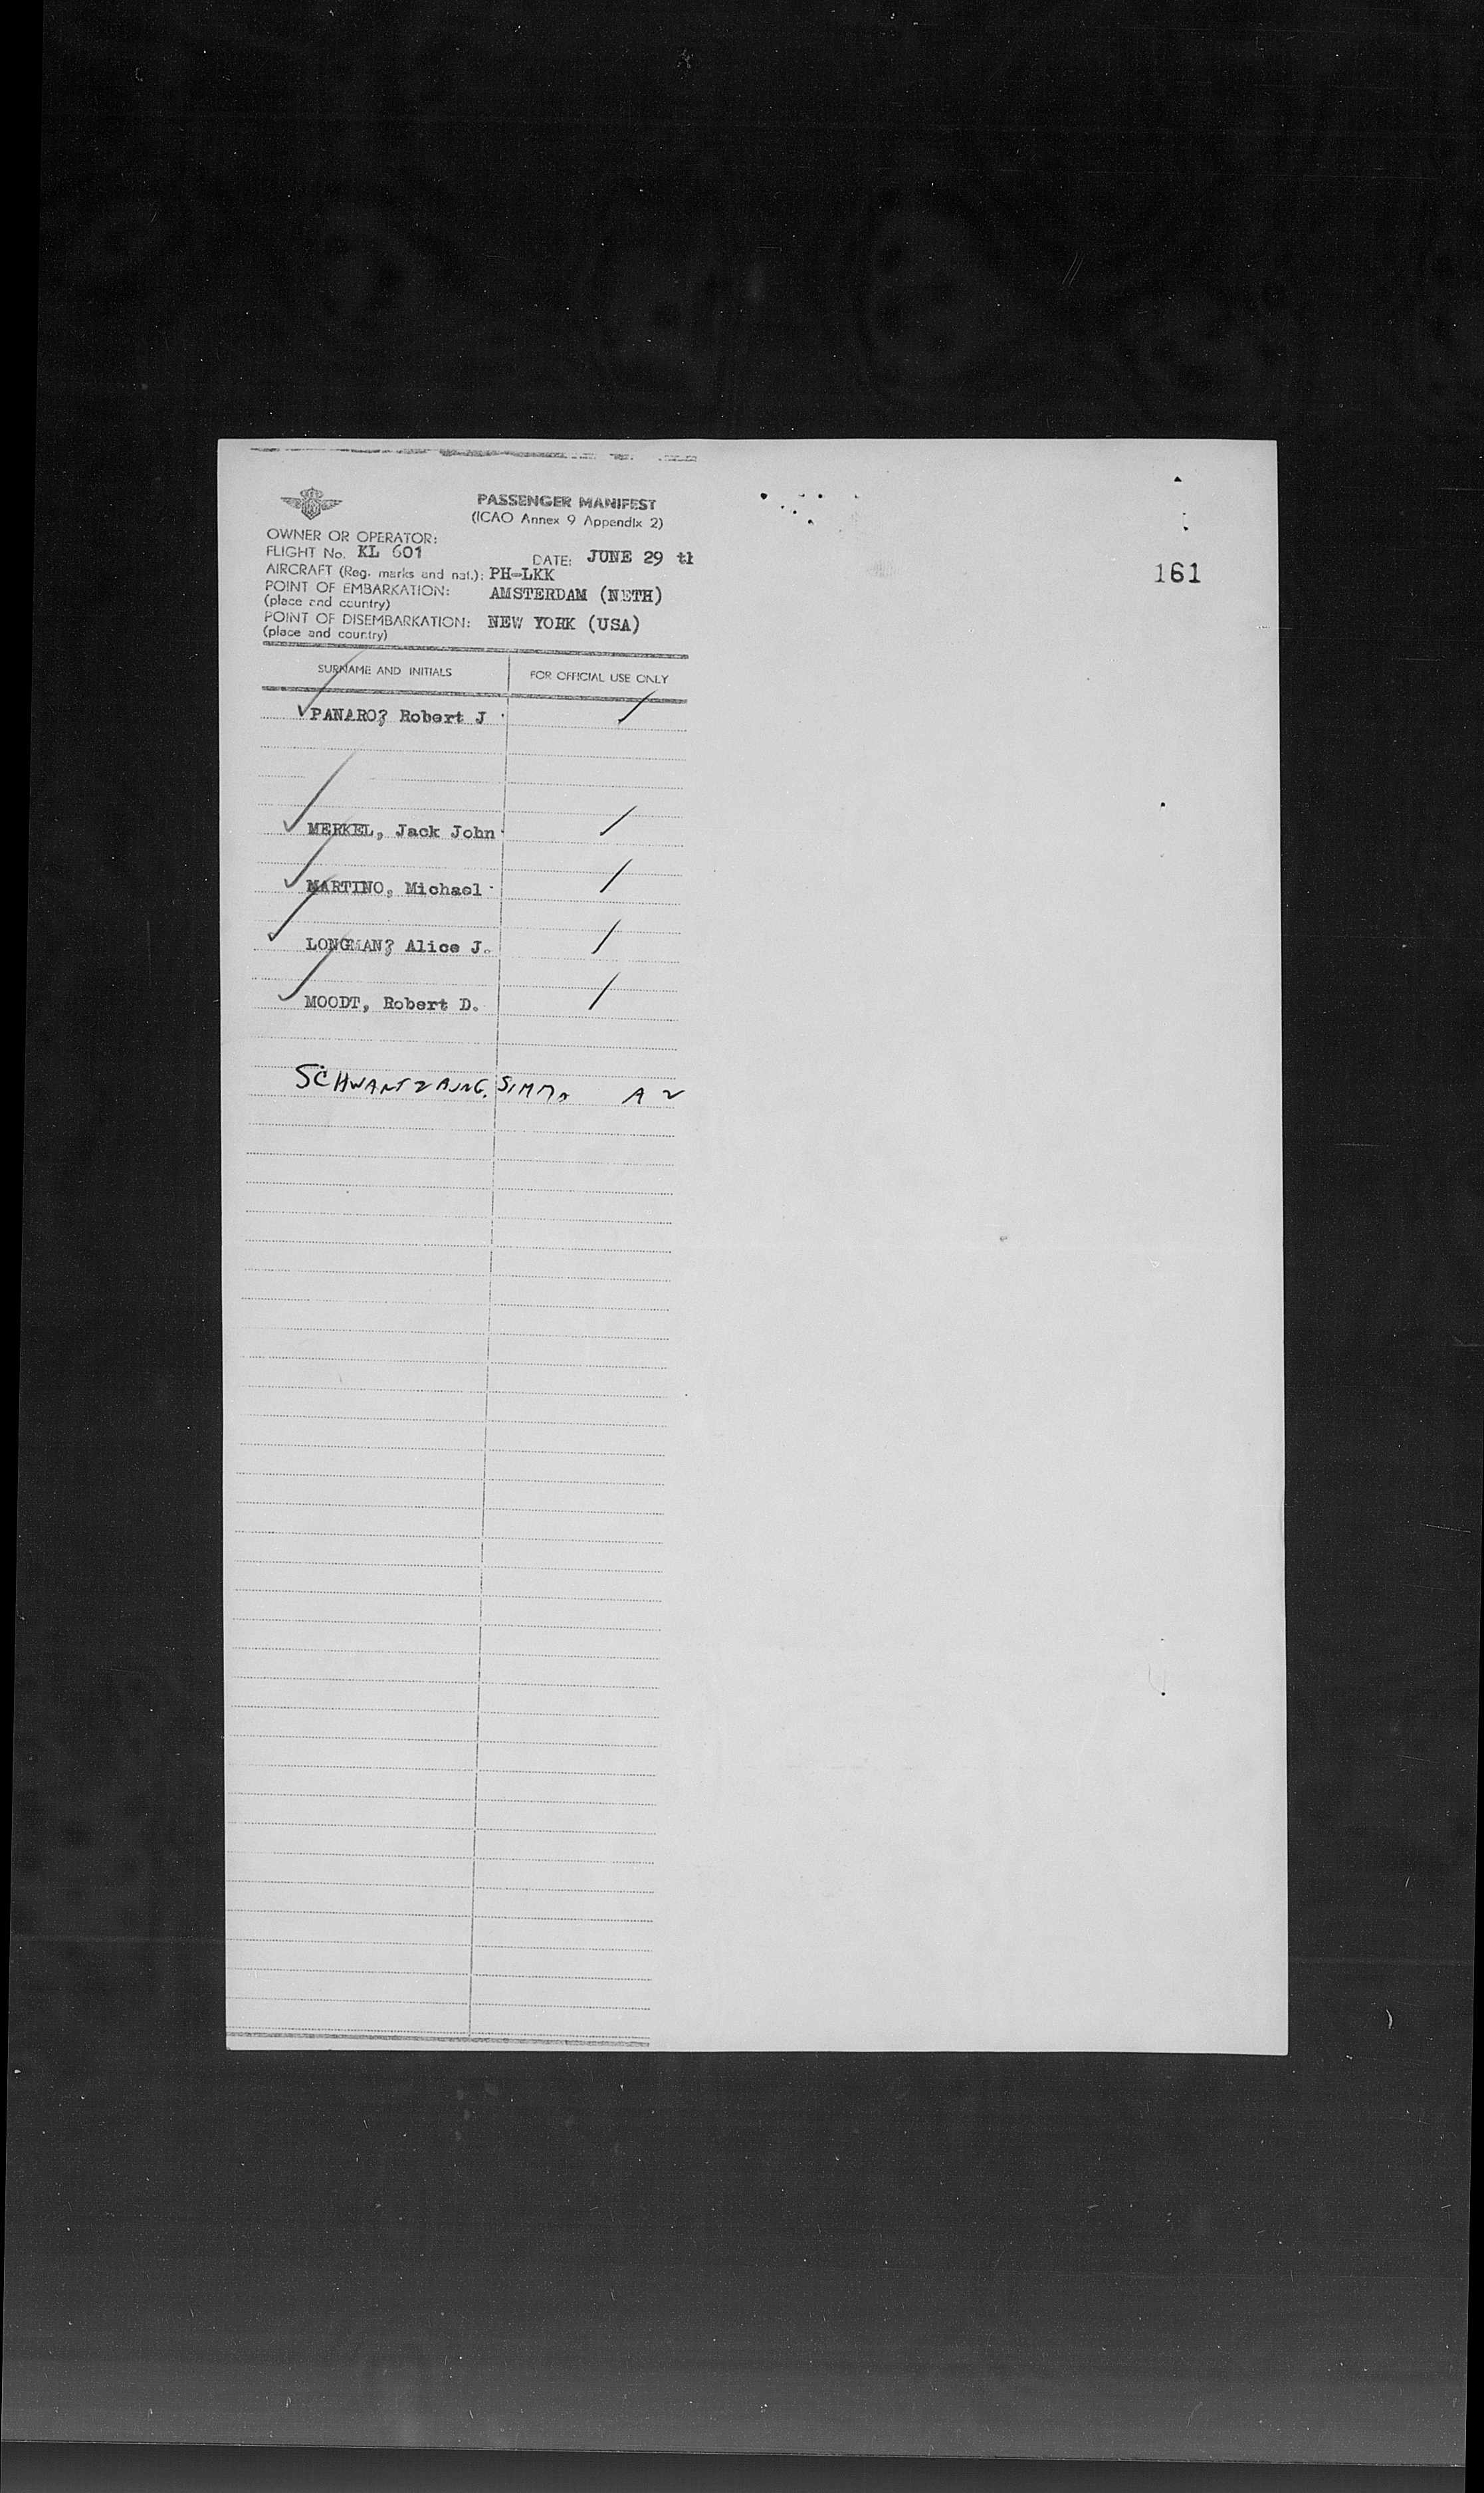 PASSENGER MANIFEST
(ICAO Annex 9 Appendix 2)
OWNER OR OPERATOR:
FLIGHT No. KL 601
DATE: JUNE 29 th
161
AIRCRAFT (Reg. marks and nat.): PH-LKK
POINT OF EMBARKATION: AMSTERDAM (NETH)
(place and country)
POINT OF DISEMBARKATION: NEW YORK (USA)
(place and country)
SURNAME AND INITIALS FOR OFFICIAL USE ONLY
PANARO? Robert J
MERKEL, Jack John
MARTINO, Michael
LONGMAN? Alice J.
MOODT, Robert D.
A 2